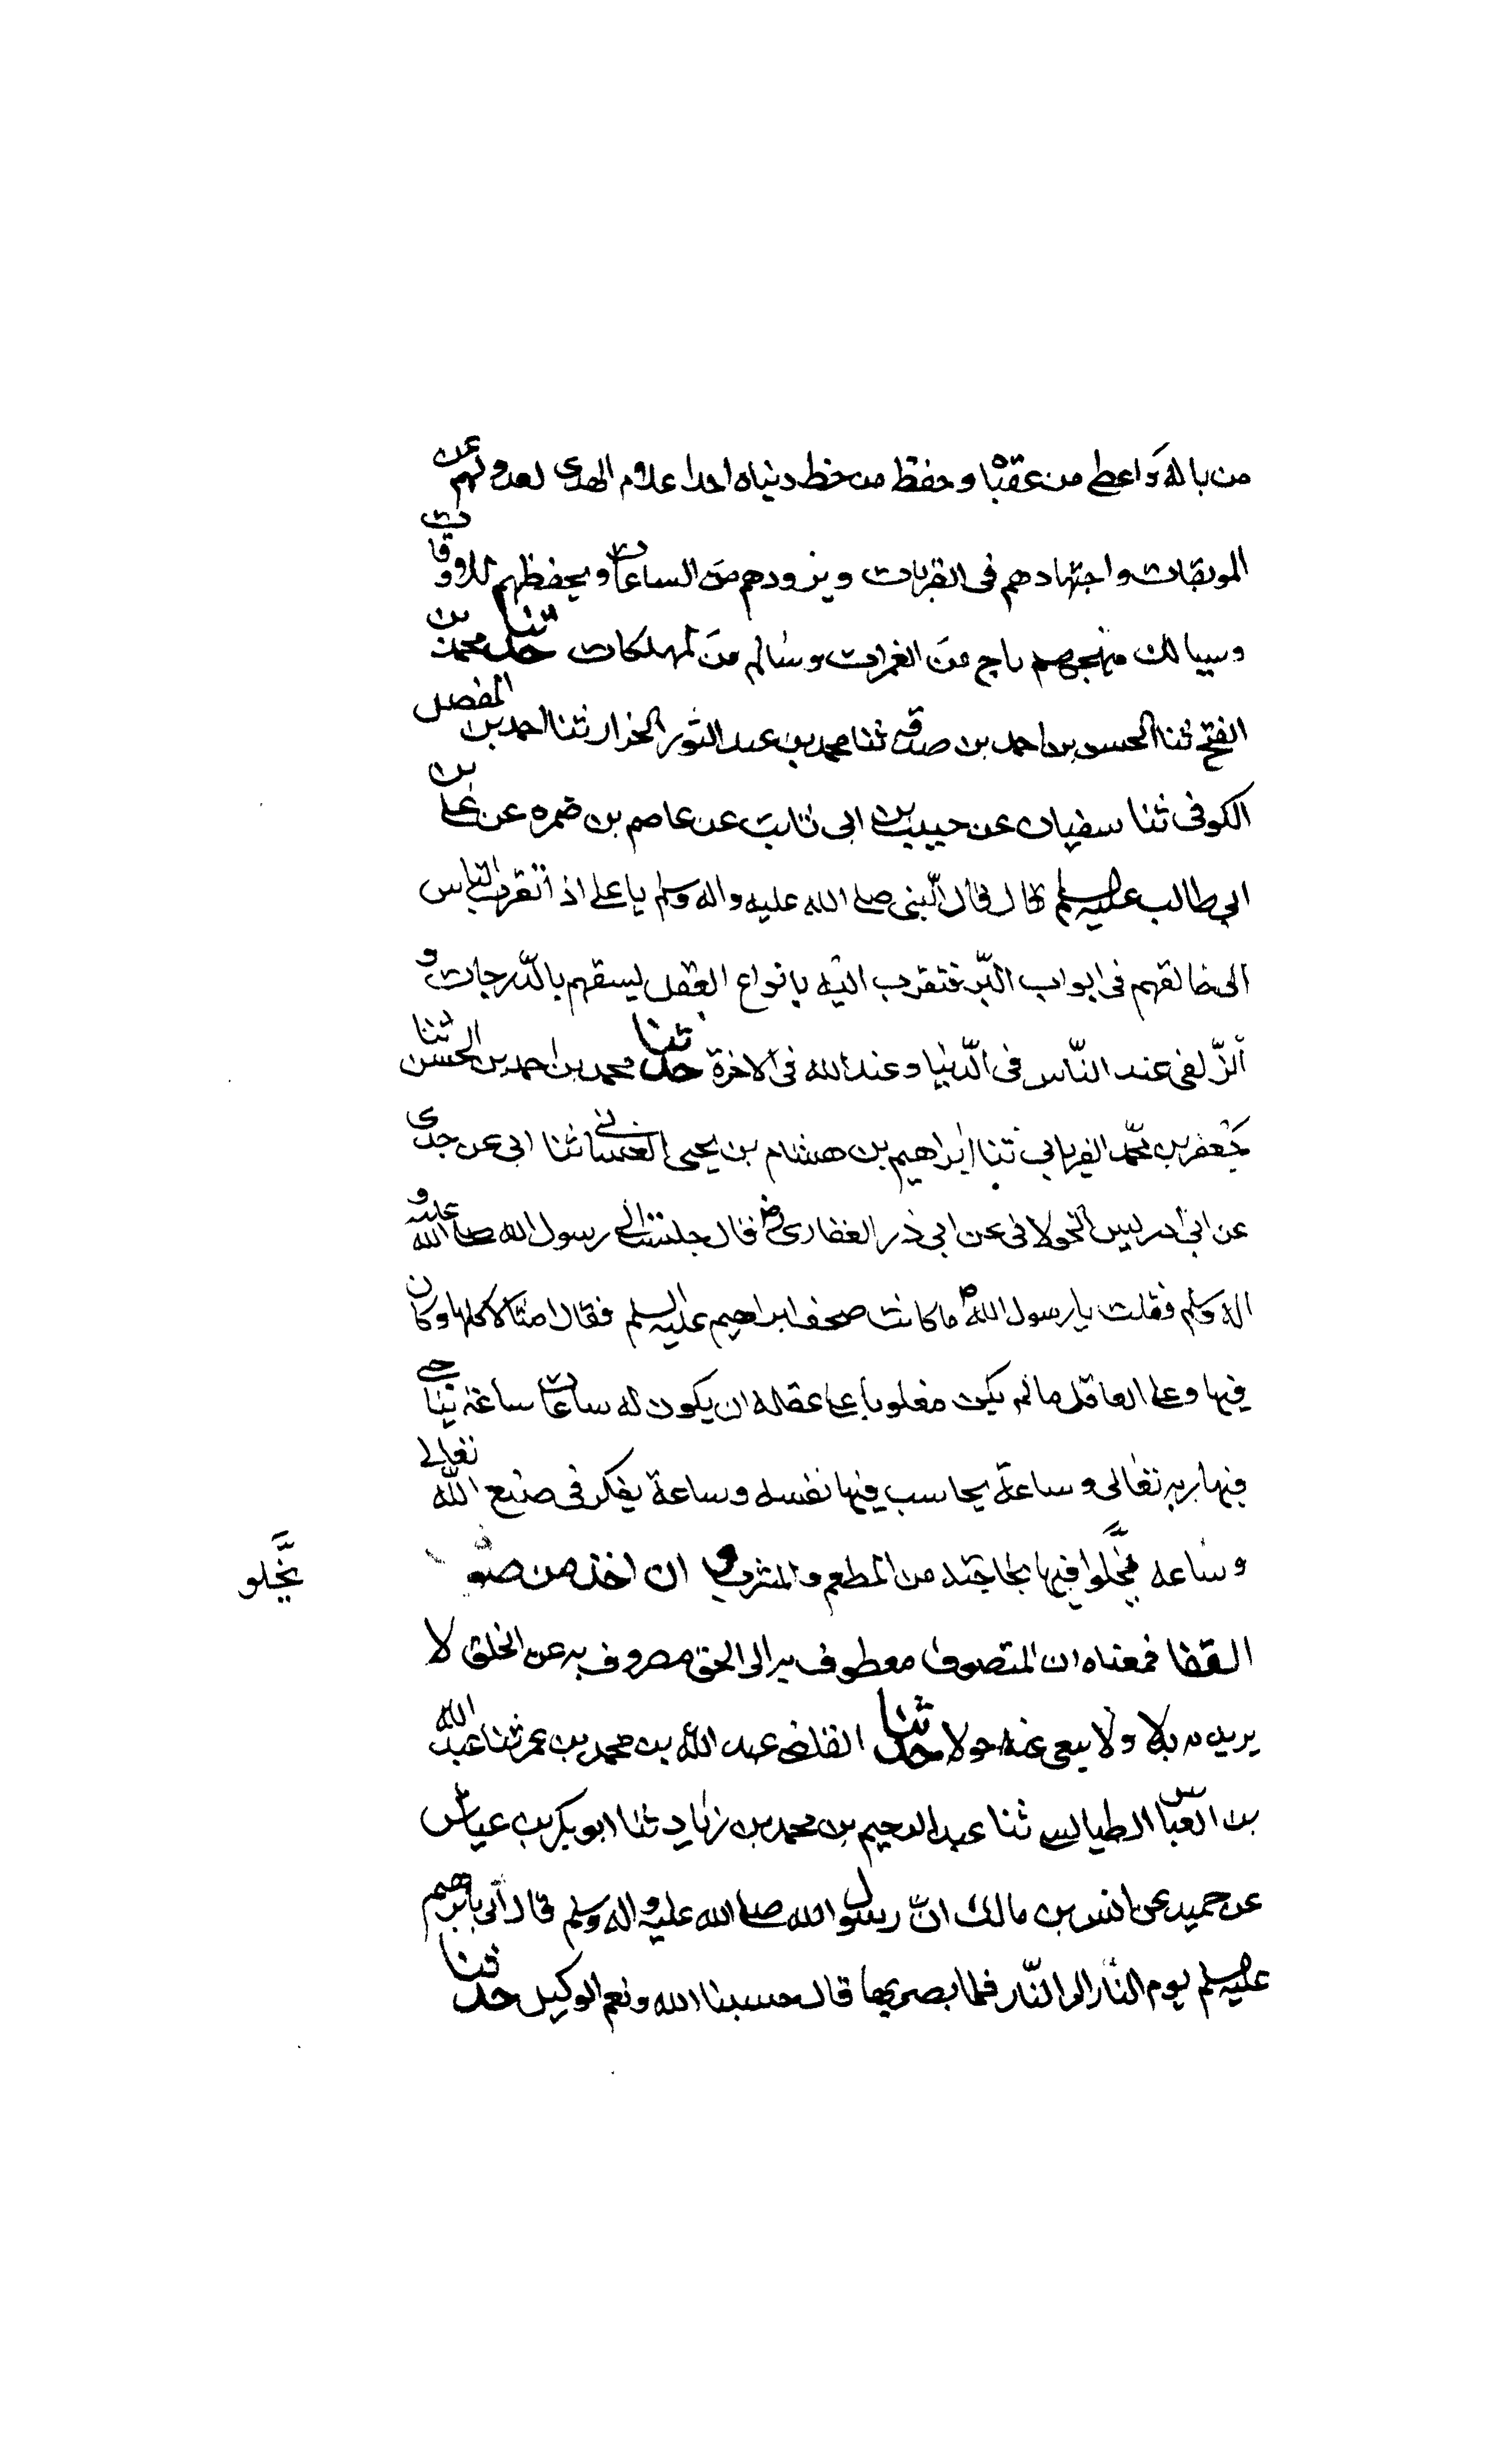 من باله واعطى من عقباه وحفظ من حظ دنياه احد اعلام الهدى لعدولهم عن
الموبقات واجتهادهم فى القربات وتزودهم من الساعات ويحفظهم للاوقات
وسالك منهجهم ناج من الغمرات وسالم من المهلكات حدثنا محمد بن
الفتح ثنا الحسن بن احمد بن صدقه ثنا محمد بن عبد النور الخزار ثنا احمد بن المفضل
الكوفى ثنا سفيان عن حبيب بن ابى ثابت عن عاصم بن ضمره عن على بن
ابى طالب عليه السلم قال قال النبى صلى الله عليه واله وسلم يا على اذا تقرب الناس
الى خالقهم فى ابواب البر فتقرب اليه بانواع العقل لسبقهم بالدرجات و
الزلفى عند الناس فى الدنيا وعند الله فى الاخرة حدثنا محمد بن احمد بن الحسن ثنا
جعفر بن محمد الفريابى ثنا ابراهيم بن هشام بن يحيى الغسانى ثنا ابى عن جدى
عن ابى ادريس الخولانى عن ابى ذر الغفارى رض قال جلست الى رسول الله صلى الله عليه و
اله وسلم فقلت يا رسول الله ص ما كانت صحف ابراهيم عليه السلم فقال امثالا كلها وكان
فيها وعلى العاقل ما لم يكن مغلوبا على عقله ان يكون له ساعات ساعة يناجى
فيها ربه تعالى وساعة يحاسب فيها نفسه وساعة يفكر فى صنع الله تعالى
وساعه يخلوا فيها بحاجته من المطعم والمشرب و ان اخذ من صوفه
يخلو
القفا فمعناه ان المتصوف معطوف به الى الحق مصروف به عن الخلق لا
يريد به بدلا ولا يبغى عنه حولا حدثنا القاضى عبد الله بن محمد بن عمر ثنا عبد الله
بن العباس الطيالسى ثنا عبد الرحيم بن محمد بن زياد ثنا ابو بكر بن عياش
عن حميد عن انس بن مالك ان رسول الله صلى الله عليه واله وسلم قال اتى بابراهيم
عليه السلم يوم النار الى النار فلما بصر بها قال حسبنا الله ونعم الوكيل حدثنا